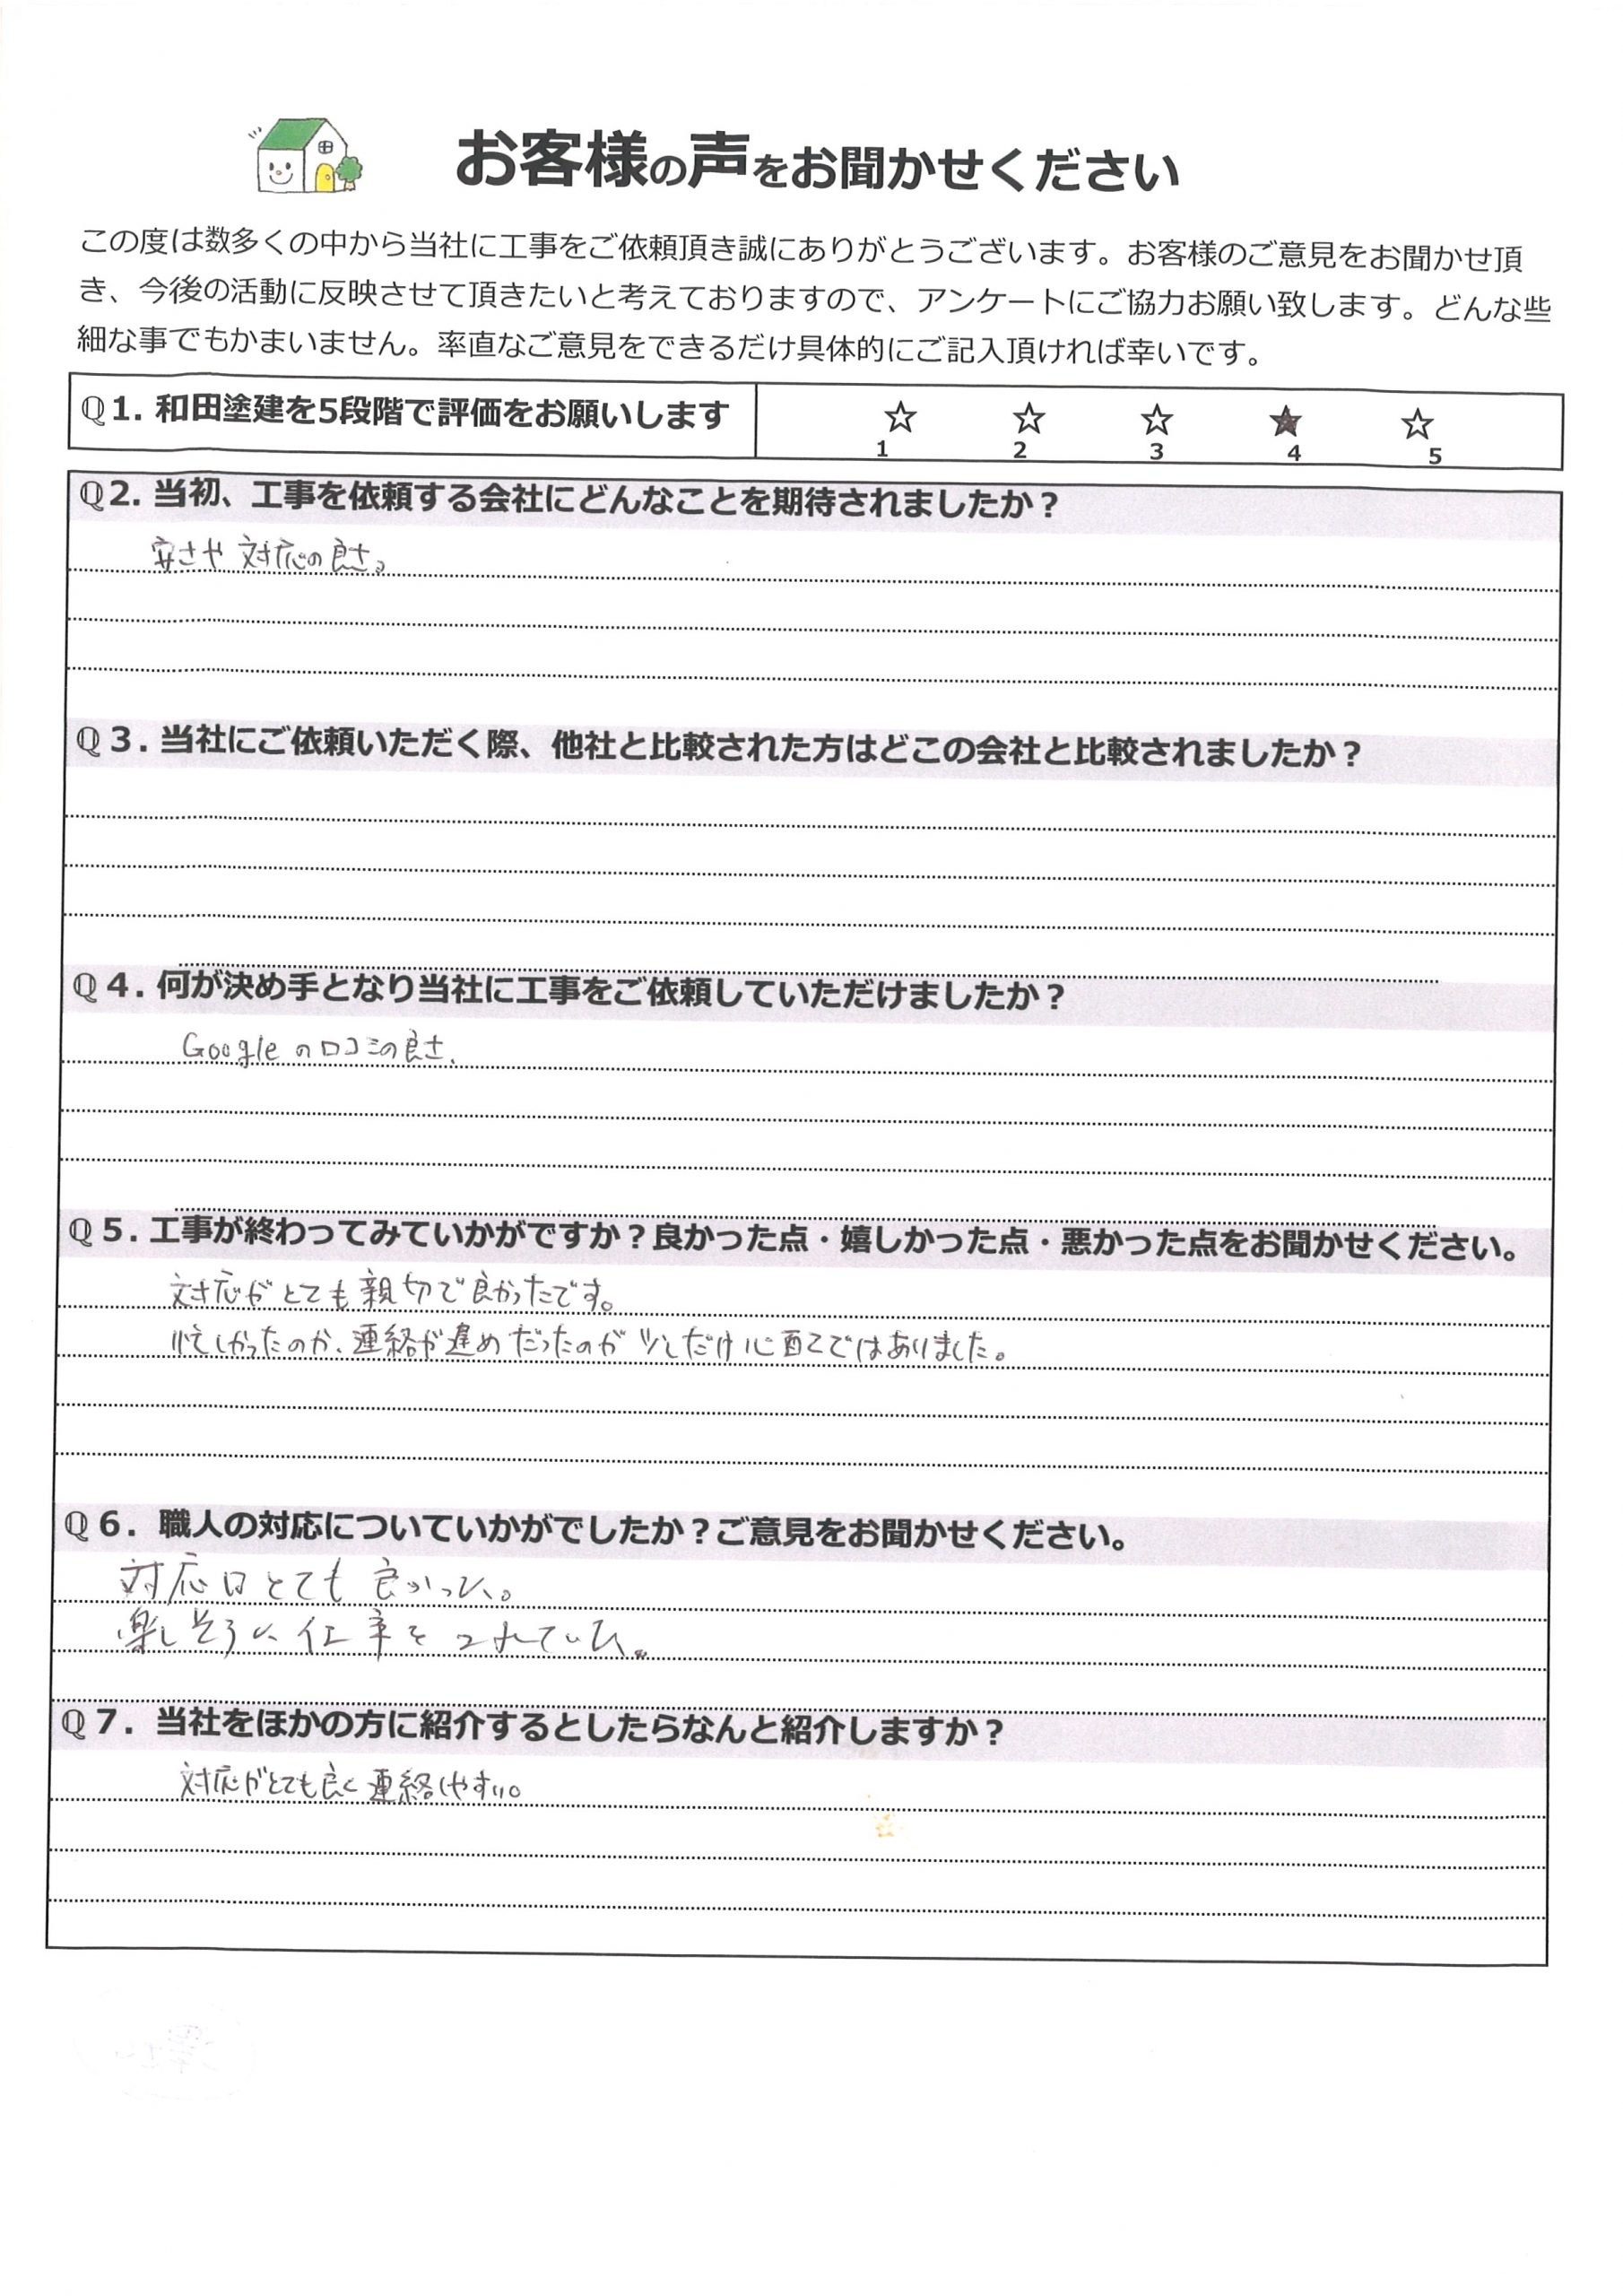 お客様の声をお聞かせください
この度は数多くの中から当社に工事をご依頼頂き誠にありがとうございます。お客様のご意見をお聞かせ頂
き、今後の活動に反映させて頂きたいと考えておりますので、アンケートにご協力お願い致します。どんな些
細な事でもかまいません。率直なご意見をできるだけ具体的にご記入頂ければ幸いです。
Q1. 和田塗建を5段階で評価をお願いします ☆ ☆ ☆ ★ ☆
1 2 3 4 5
Q2. 当初、工事を依頼する会社にどんなことを期待されましたか？
安さや対応の良さ。
Q3. 当社にご依頼いただく際、他社と比較された方はどこの会社と比較されましたか？
Q4. 何が決め手となり当社に工事をご依頼していただけましたか？
Googleの口コミの良さ。
Q5. 工事が終わってみていかがですか？良かった点・嬉しかった点・悪かった点をお聞かせください。
対応がとても親切で良かったです。
忙しかったのか、連絡が遅めだったのが少しだけ心配ではありました。
Q6. 職人の対応についていかがでしたか？ご意見をお聞かせください。
対応はとても良かった。
楽しそうに仕事をされていた。
Q7. 当社をほかの方に紹介するとしたらなんと紹介しますか？
対応がとても良く連絡しやすい。